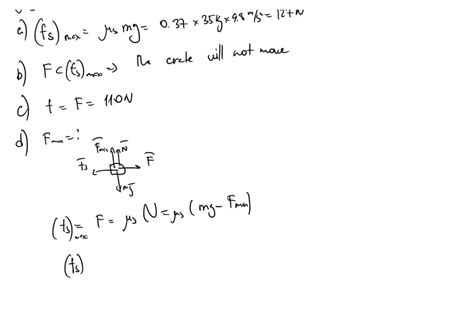 a) (fs)max = μs mg = 0.37 × 35 kg × 9.8 m/s² = 127 N
b) F < (fs)max => The crate will not move
c) f = F = 110N
d) Fmin = ?
Fmin N
fs F
mg
(fs)max = F = μs N = μs (mg - Fmin)
(fs)